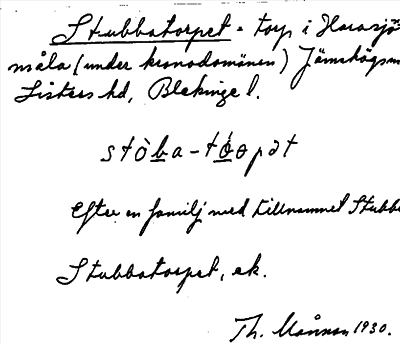 Stubbatorpet = torp i Harasjö
måla (under kronodomänen) Jämshögs
Listers hd, Blekinge l.
stòba-tòrpət
Efter en familj med tillnamnet Stubb
Stubbatorpet, ek.
Th. Månsson 1930.